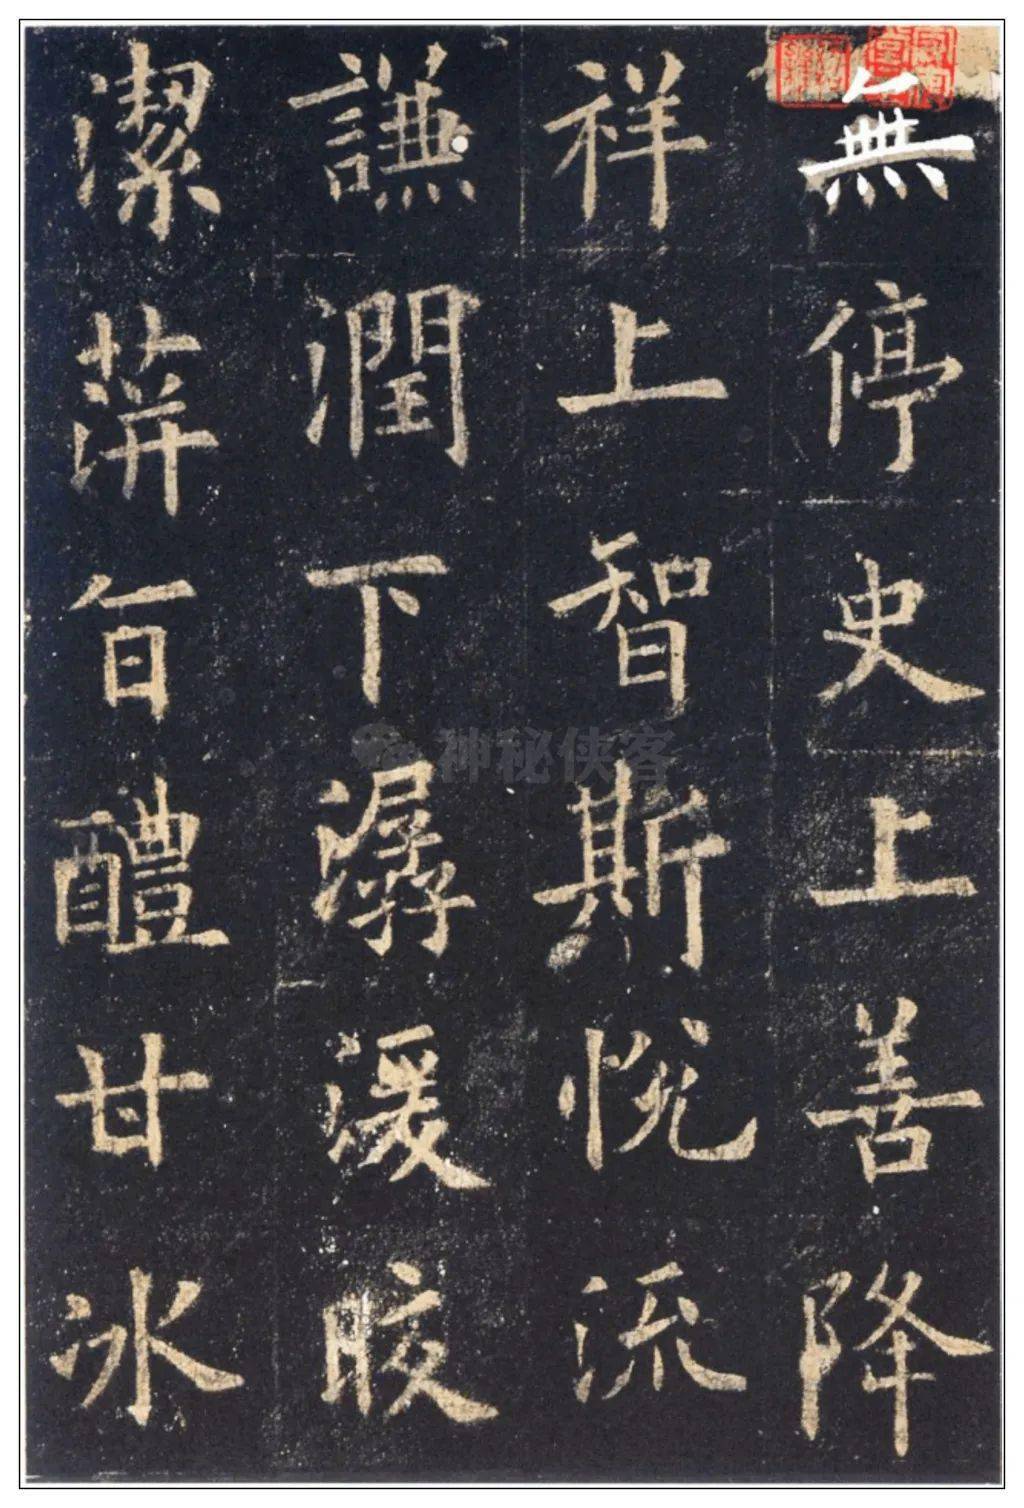 無停史上善降
祥上智斯悅流
謙潤下潺湲晈
潔蓱旨醴甘冰
神秘侠客